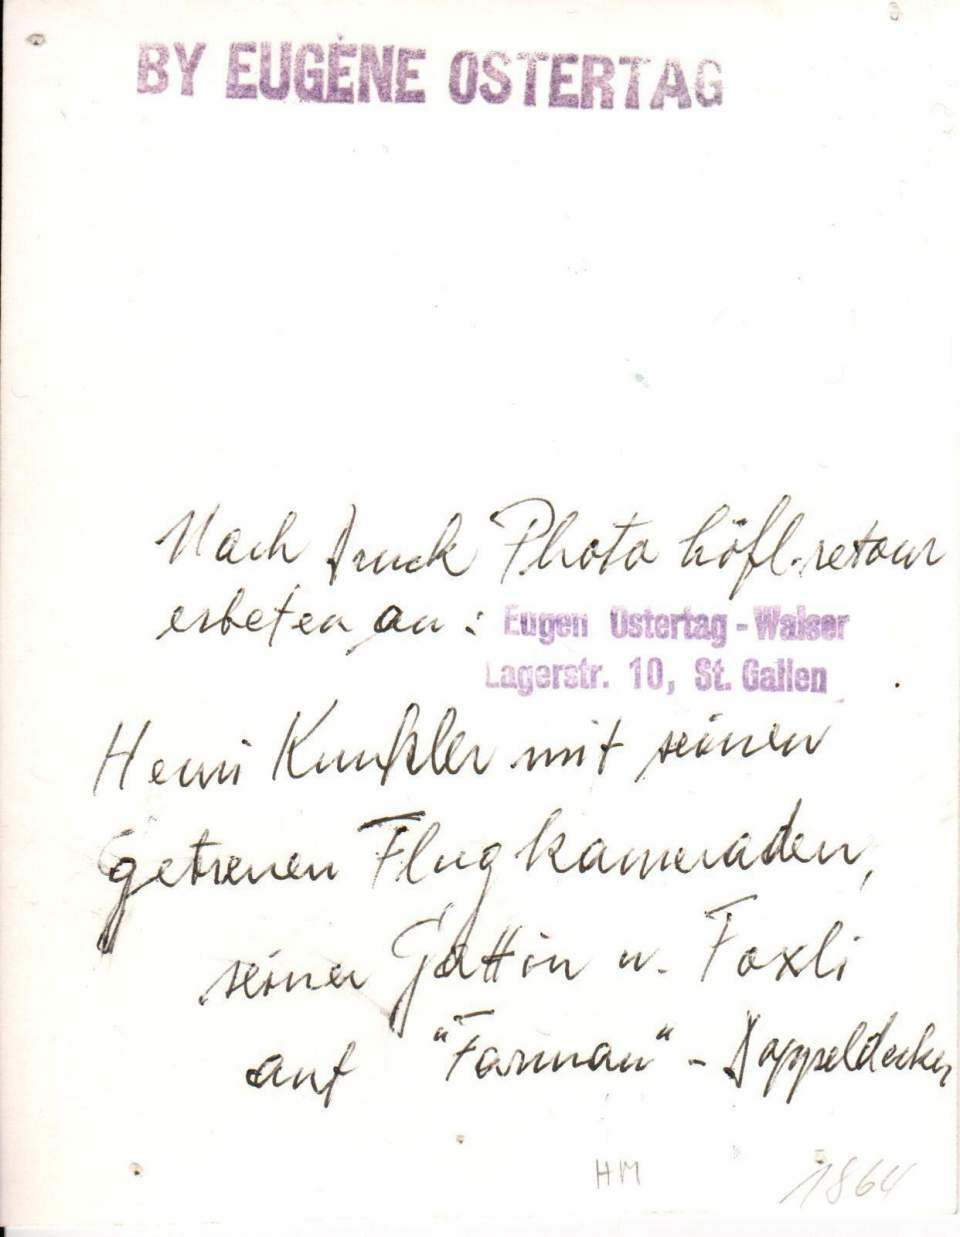 BY EUGÈNE OSTERTAG
Nach Druck Photo höfl. retour
erbeten an: Eugen Ostertag-Walser
Lagerstr. 10, St. Gallen
Henri Kunkler mit seinen
getreuen Flugkameraden,
seiner Gattin u. Foxli
auf "Farman"-Doppeldecker
HM 1864